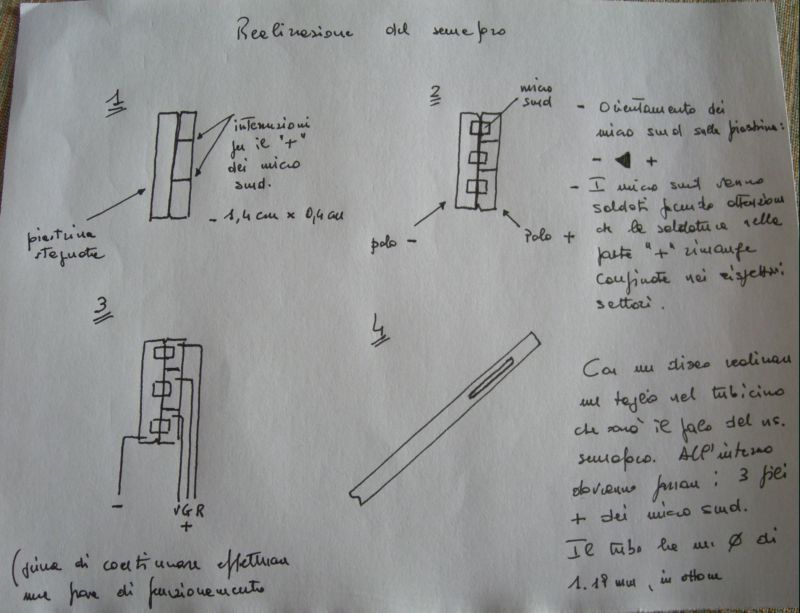 Realizzazione del semaforo
1
interruzioni
per il "+"
dei micro
smd.
- 1,4 cm x 0,4 cm
piastrina
stagnata
2
micro
smd
polo -
polo +
- Orientamento dei
micro smd sulla piastrina:
- ◀ +
- I micro smd vanno
saldati facendo attenzione
che la saldatura nella
parte "+" rimanga
confinata nei rispettivi
settori.
3
-
V G R
+
(prima di continuare effettuare
una prova di funzionamento
4
Con un disco realizzare
un taglio nel tubicino
che sarà il palo del ns.
semaforo. All'interno
dovranno passare i 3 fili
+ dei micro smd.
Il tubo ha un Ø di
mm, in ottone